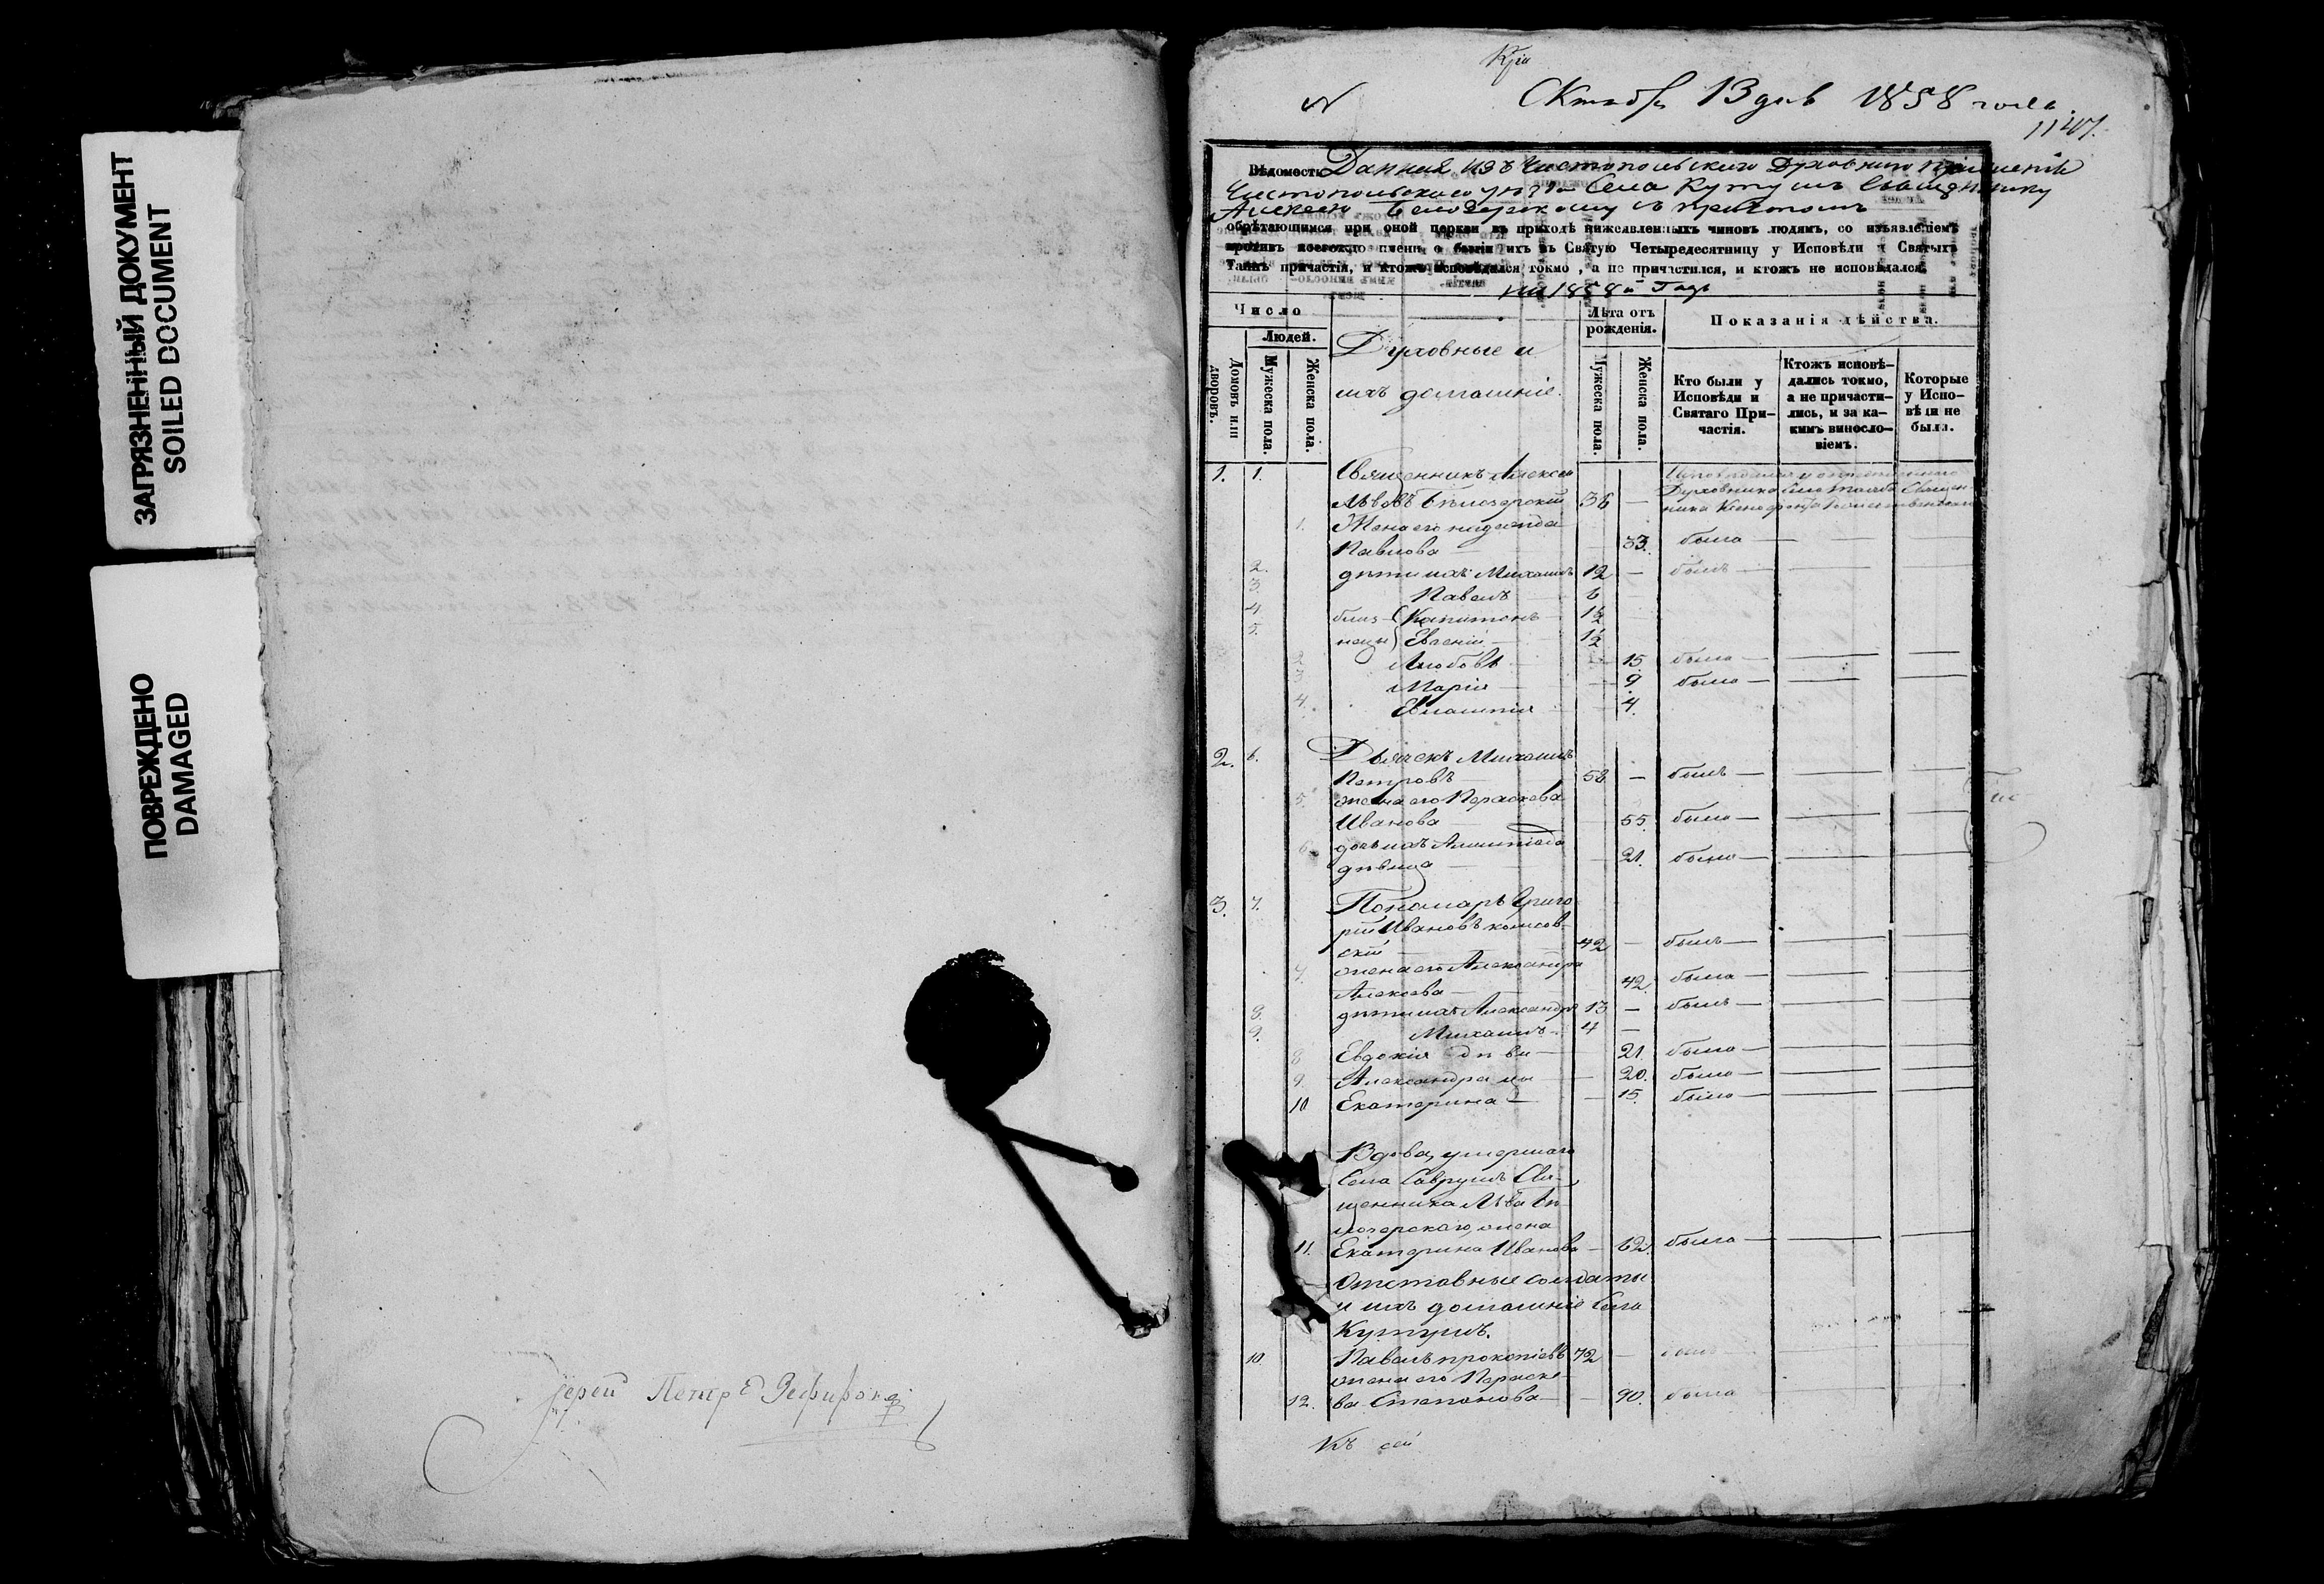 ЗАГРЯЗНЕННЫЙ ДОКУМЕНТ
SOILED DOCUMENT
ПОВРЕЖДЕНО
DAMAGED
Іерей Петръ Зефировъ
N
Октября 13 дня 1858 года
1147.
Вѣдомость Данная изъ Чистопольскаго Духовнаго Правленія
Чистопольскаго уѣзда Села Кутушъ Священнику
Алексею Белозерскому съ причтомъ
обрѣтающимся при оной церкви въ приходѣ нижеявленныхъ чиновъ людямъ, со изъявленіемъ
противъ коегождо имени о бытіи ихъ въ Святую Четыредесятницу у Исповѣди и Святыхъ
Таинъ причастія, и ктожъ исповѣдался токмо, а не причастился, и ктожъ не исповѣдался,
на 1858й Годъ
Число
Людей.
Домовъ или дворовъ.
Мужеска пола.
Женска пола.
Духовные и
ихъ домашніе.
Лѣта отъ рожденія.
Мужеска пола.
Женска пола.
Показанія дѣйства.
Кто были у Исповѣди и Святаго Причастія.
Ктожъ исповѣдались токмо, а не причастились, и за какимъ винословіемъ.
Которые у Исповѣди не были.
1. 1. Священникъ Алексей
Львовъ Бѣлозерскій 36 —
Духовника Священ-
1. Жена его надежда
Павлова — 33. была — — —
2. дѣти ихъ Михаилъ 12 — былъ — — —
3. Павелъ 6 —
4. близ- Капитонъ 1½
5. нецы Евгеній 1½
2. Любовь — 15. была — — —
3. Марія — 9. была — — —
4. Евлампія — 4.
2. 6. Дьячекъ Михаилъ
Петровъ 58 — былъ — — —
5. жена его Пераскева
Иванова — 55. была — — —
6. дочь ихъ Олимпіада
дѣвица — 21. была — — —
3. 7. Пономарь Григо
рій Ивановъ колисов-
скій — 42 — былъ — — —
7. жена его Александра
Алексева — 42. была — — —
8. дѣти ихъ Александръ 13 — былъ — — —
9. Михаилъ — 4 —
8 Евдокія дѣви — 21. была — — —
9. Александра цы — 20. была — — —
10 Екатерина — 15. была — — —
Вдова, умершаго
Села Саврушъ Свя-
щенника Льва Бѣ
лозерскаго, жена
11. Екатерина Иванова — 62. была — — —
Отставные солдаты
и ихъ домашніе Села
Кутушъ.
10. Павелъ прокопіевъ 72 — былъ
жена его Параске-
12. ва Степанова — 90. была — — —
Къ сей